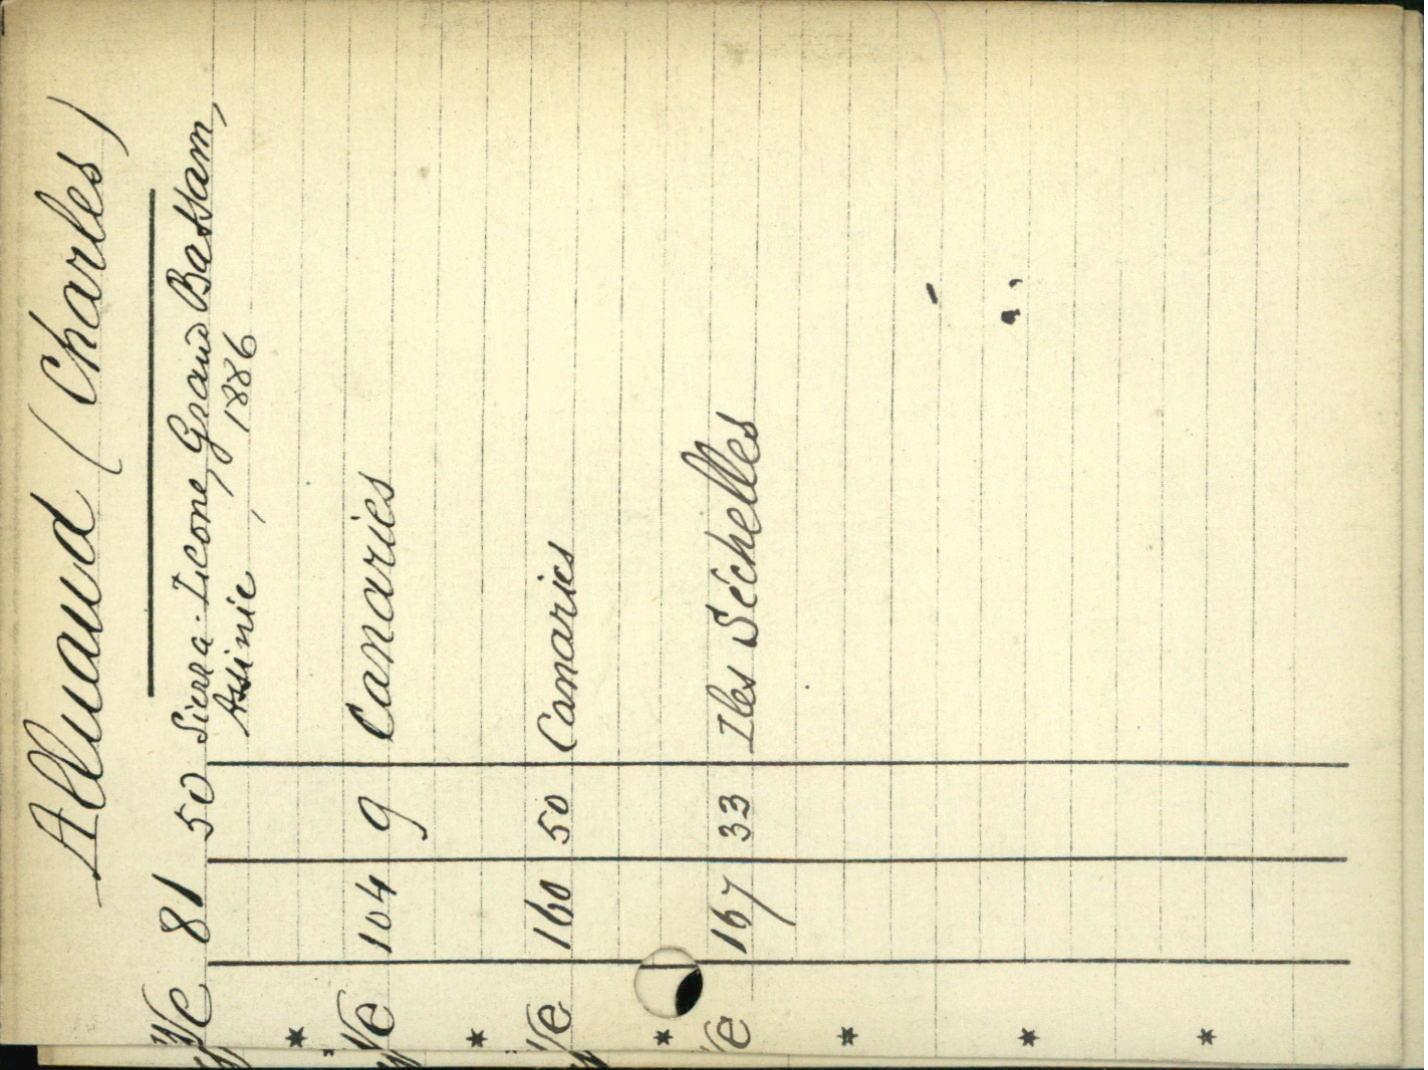 Alluaud (Charles)
We 81 50 Sierra-Leone, Grand Bassam,
Assinie, 1886
We 104 9 Canaries
We 160 50 Canaries
We 167 33 Iles Séchelles